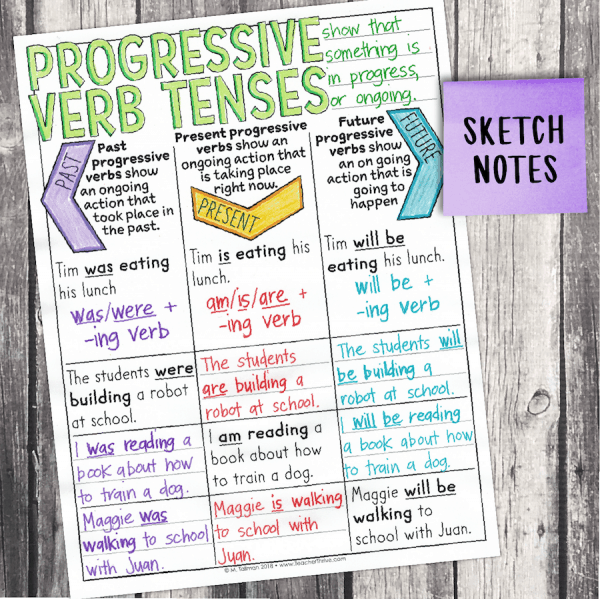 PROGRESSIVE
VERB TENSES
show that
something is
in progress,
or ongoing.
PAST
Past
progressive
verbs show
an ongoing
action that
took place in
the past.
Present progressive
verbs show an
ongoing action that
is taking place
right now.
PRESENT
Future
progressive
verbs show
an on going
action that is
going to
happen
FUTURE
SKETCH
NOTES
Tim was eating
his lunch
was/were +
-ing verb
Tim is eating his
lunch.
am/is/are +
-ing verb
Tim will be
eating his lunch.
will be +
-ing verb
The students were
building a robot
at school.
The students
are building a
robot at school.
The students will
be building a
robot at school.
I was reading a
book about how
to train a dog.
I am reading a
book about how
to train a dog.
I will be reading
a book about how
to train a dog.
Maggie was
walking to school
with Juan.
Maggie is walking
to school with
Juan.
Maggie will be
walking to
school with Juan.
© M. Tallman 2018 • www.TeacherThrive.com